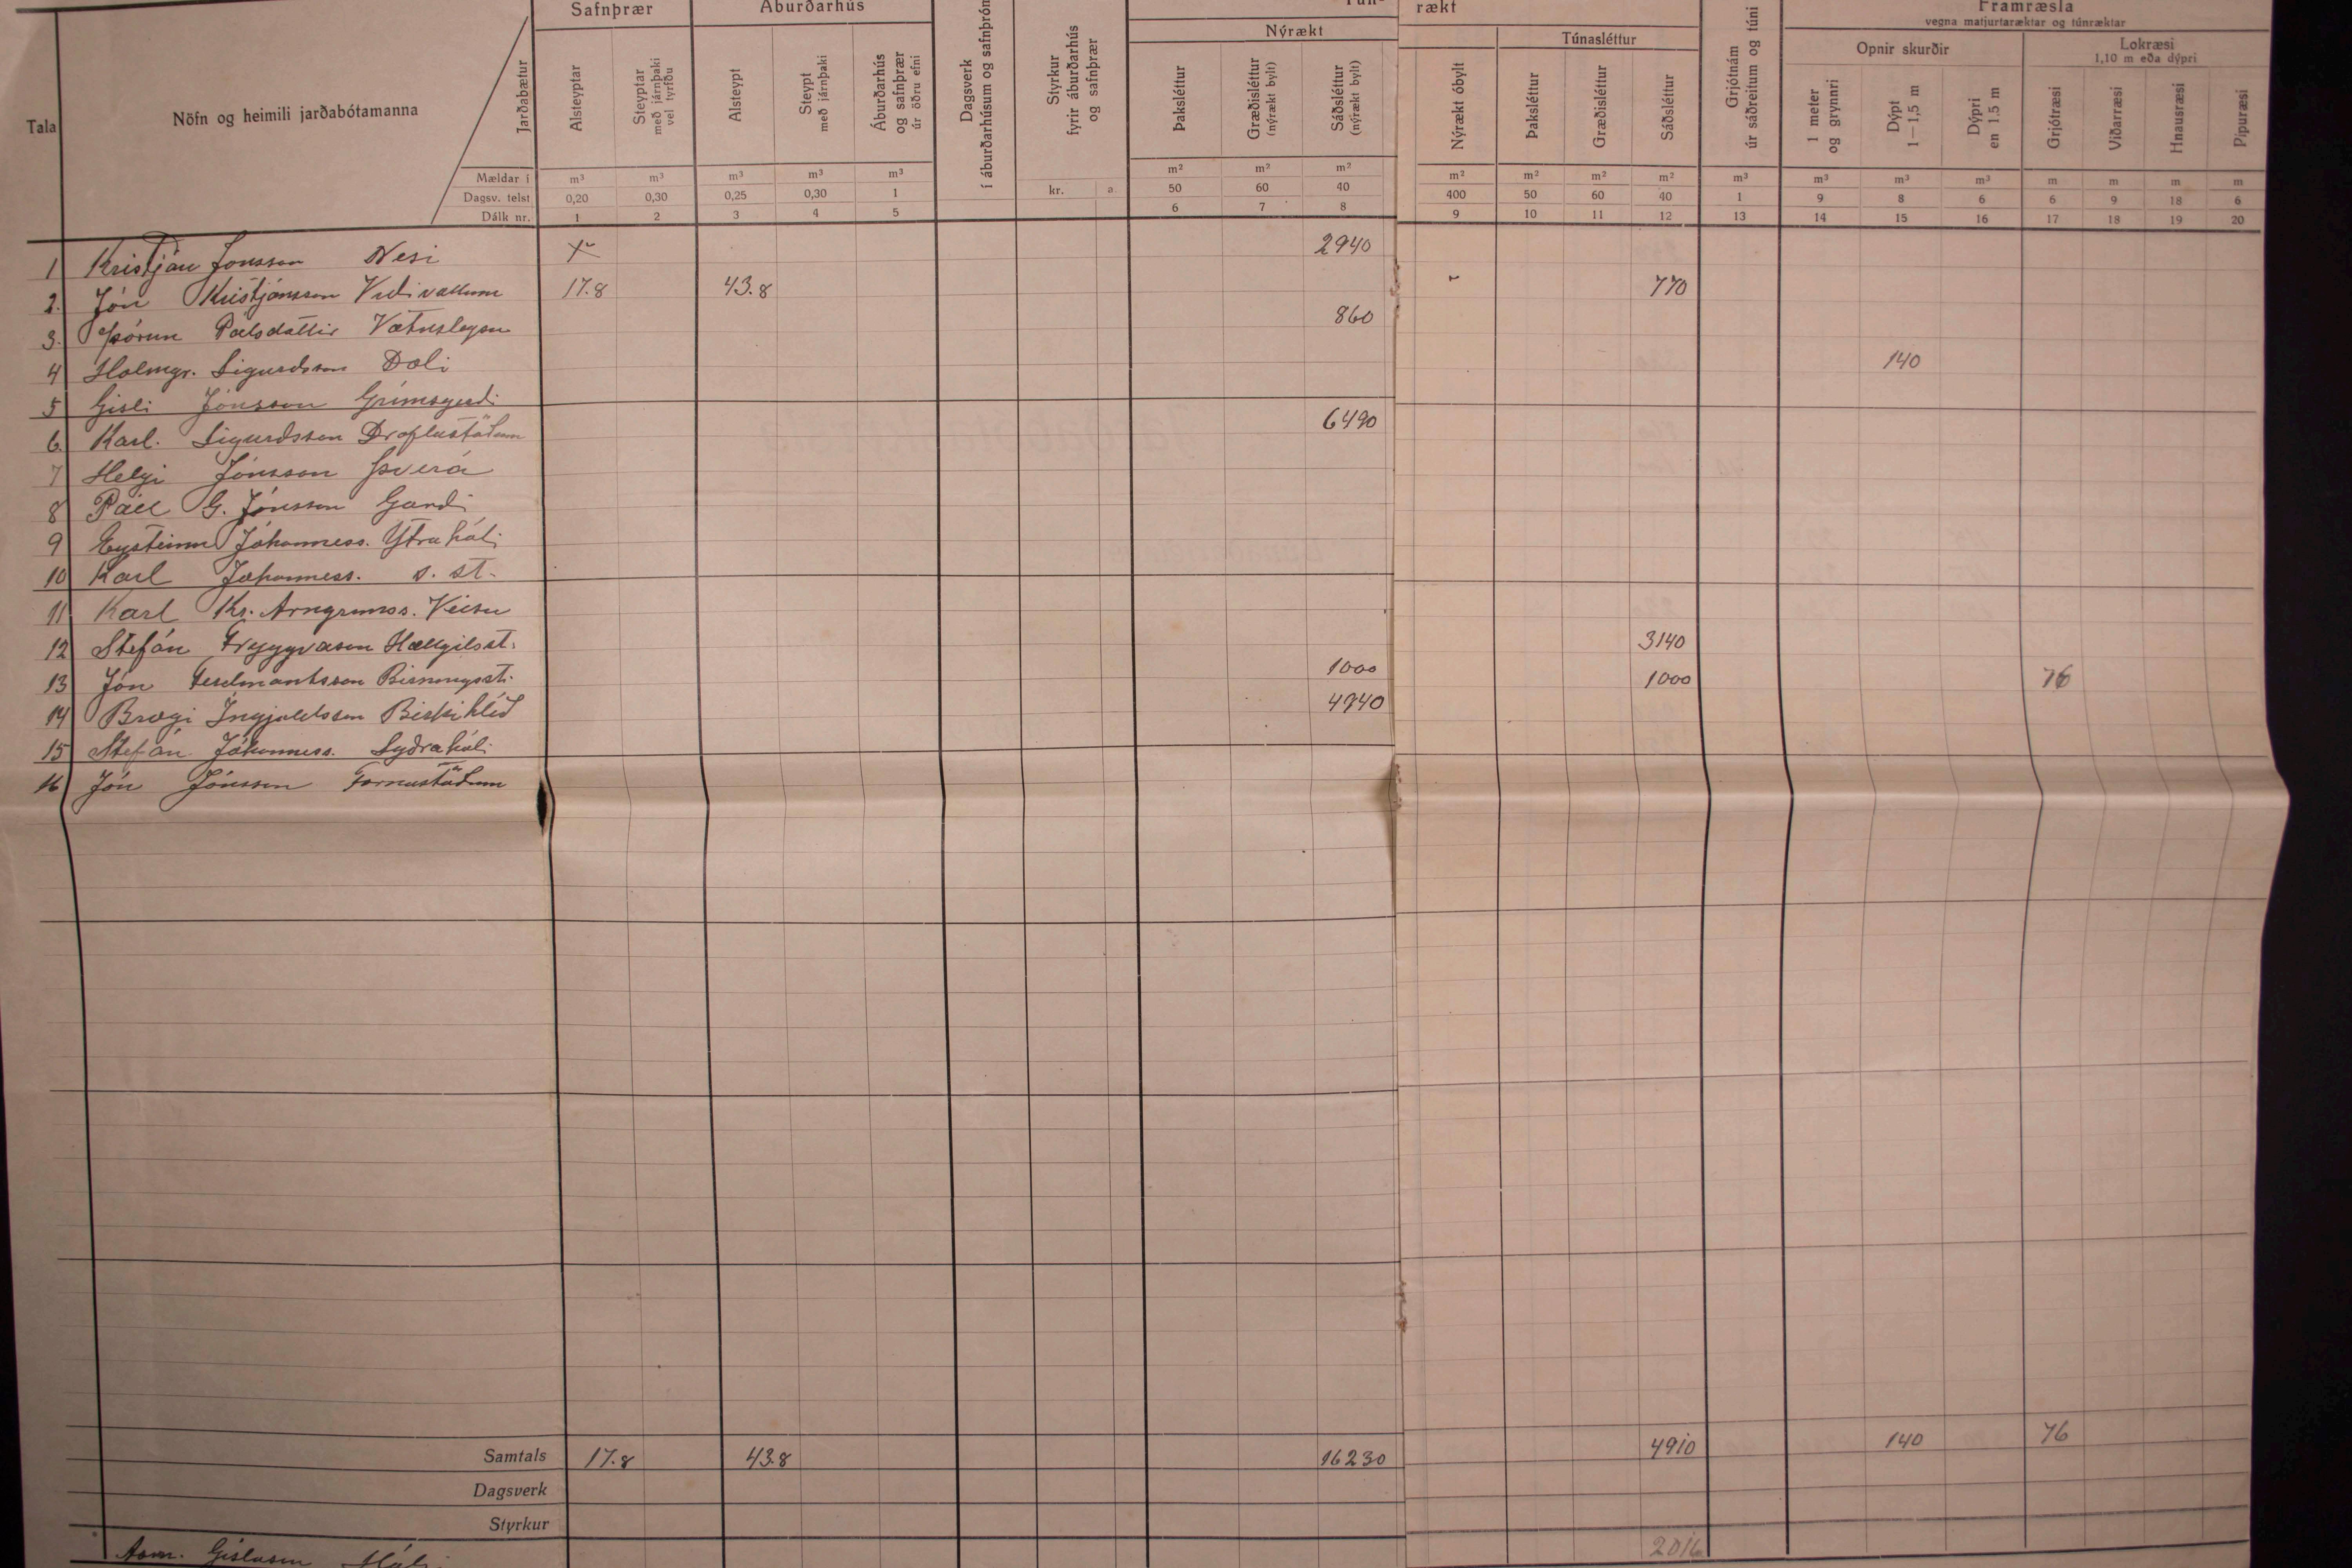 Safnþrær Áburðarhús Tún- rækt Framræsla
vegna matjurtaræktar og túnræktar
Nýrækt Túnasléttur Opnir skurðir Lokræsi
1,10 m eða dýpri
Tala Nöfn og heimili jarðabótamanna Jarðabætur
Alsteyptar
Steyptar með járnþaki vel tyrfðu
Alsteypt
Steypt með járnþaki
Áburðarhús og safnþrær úr öðru efni
Dagsverk í áburðarhúsum og safnþróm
Styrkur fyrir áburðarhús og safnþrær
Þaksléttur
Græðisléttur (nýrækt bylt)
Sáðsléttur (nýrækt bylt)
Nýrækt óbylt
Þaksléttur
Græðisléttur
Sáðsléttur
Grjótnám úr sáðreitum og túni
1 meter og grynnri
Dýpt 1—1,5 m
Dýpri en 1.5 m
Grjótræsi
Viðarræsi
Hnausræsi
Pípuræsi
Mældar í m³ m³ m³ m³ m³ m² m² m² m² m² m² m² m³ m³ m³ m³ m m m m
Dagsv. telst 0,20 0,30 0,25 0,30 1 kr. a. 50 60 40 400 50 60 40 1 9 8 6 6 9 18 6
Dálk nr. 1 2 3 4 5 6 7 8 9 10 11 12 13 14 15 16 17 18 19 20
1 Kristján Jónsson Nesi 2940
2. Jón Kristjánsson Víðivöllum 17.8 43.8 770
3. Þórun Pálsdóttir Vatnsleysu 860
4 Hólmgr. Sigurdsson Dæli 140
5 Gísli Jónsson Grímsgerdi
6. Karl. Sigurdsson Draflastöðum 6490
7 Helgi Jónsson Þverá
8 Páll G. Jónsson Gardi
9 Eysteinn Jóhanness. Ytra hóli
10 Karl Jóhanness. s. st.
11 Karl Kr. Arngrímss. Veisu
12 Stefán Tryggvason Hallgilsst. 3140
13 Jón Ferdinantsson Birningsst. 1000 1000 76
14 Bragi Ingjaldsson Birkihlíd 4940
15 Stefán Jóhanness. Syðrahóli
16 Jón Jónsson Fornastöðum
Samtals 17.8 43.8 16230 4910 140 76
Dagsverk
Styrkur
2016
Ásm. Gíslason Hálsi